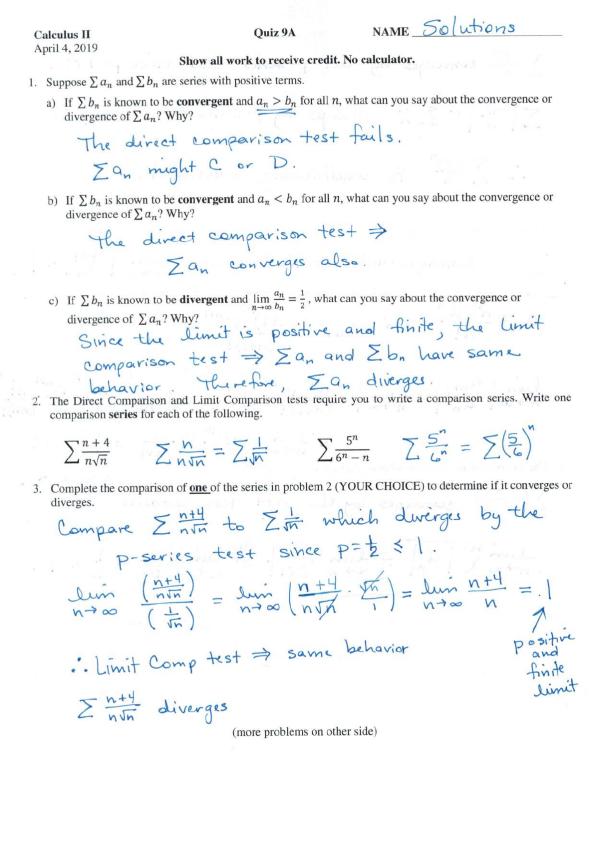 Calculus II Quiz 9A NAME Solutions
April 4, 2019
Show all work to receive credit. No calculator.
1. Suppose ∑ aₙ and ∑ bₙ are series with positive terms.
a) If ∑ bₙ is known to be convergent and aₙ > bₙ for all n, what can you say about the convergence or
divergence of ∑ aₙ? Why?
The direct comparison test fails.
∑ aₙ might C or D.
b) If ∑ bₙ is known to be convergent and aₙ < bₙ for all n, what can you say about the convergence or
divergence of ∑ aₙ? Why?
The direct comparison test ⇒
∑ aₙ converges also.
c) If ∑ bₙ is known to be divergent and lim n→∞ aₙ/bₙ = 1/2, what can you say about the convergence or
divergence of ∑ aₙ? Why?
Since the limit is positive and finite, the limit
comparison test ⇒ ∑ aₙ and ∑ bₙ have same
behavior. Therefore, ∑ aₙ diverges.
2. The Direct Comparison and Limit Comparison tests require you to write a comparison series. Write one
comparison series for each of the following.
∑ (n+4)/(n√n) ∑ n/(n√n) = ∑ 1/√n ∑ 5ⁿ/(6ⁿ − n) ∑ 5ⁿ/6ⁿ = ∑ (5/6)ⁿ
3. Complete the comparison of one of the series in problem 2 (YOUR CHOICE) to determine if it converges or
diverges.
Compare ∑ (n+4)/(n√n) to ∑ 1/√n which diverges by the
p-series test since p = 1/2 ≤ 1.
lim n→∞ ((n+4)/(n√n))/(1/√n) = lim n→∞ ((n+4)/(n√n) · √n/1) = lim n→∞ (n+4)/n = 1
positive
and
finite
limit
∴ Limit Comp test ⇒ same behavior
∑ (n+4)/(n√n) diverges
(more problems on other side)